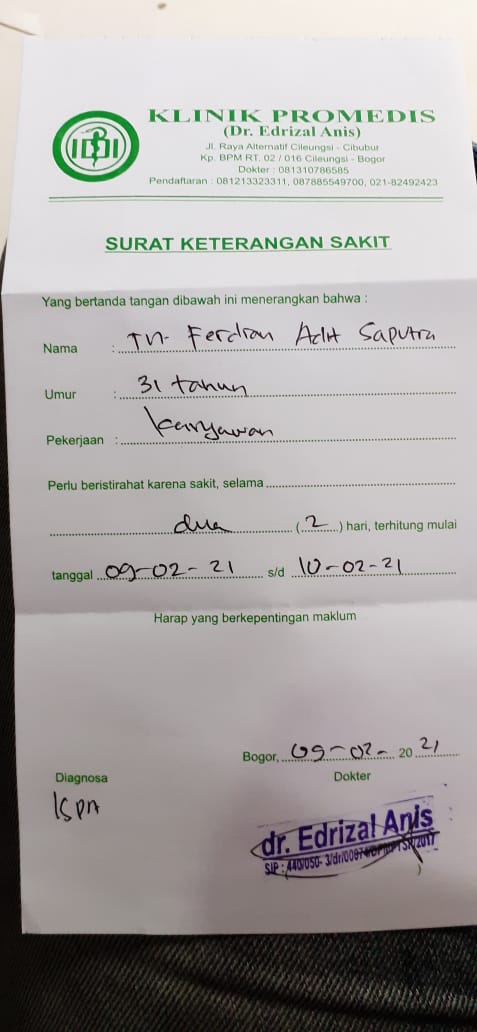 IDI
KLINIK PROMEDIS
(Dr. Edrizal Anis)
Jl. Raya Alternatif Cileungsi - Cibubur
Kp. BPM RT. 02 / 016 Cileungsi - Bogor
Dokter : 081310786585
Pendaftaran : 081213323311, 087885549700, 021-82492423
SURAT KETERANGAN SAKIT
Yang bertanda tangan dibawah ini menerangkan bahwa :
Nama : Tn. Ferdian Adit Saputra
Umur : 31 tahun
Pekerjaan : karyawan
Perlu beristirahat karena sakit, selama
dua (2) hari, terhitung mulai
tanggal 09-02-21 s/d 10-02-21
Harap yang berkepentingan maklum
Bogor, 09-02- 20 21
Diagnosa Dokter
ISPA
dr. Edrizal Anis
SIP : 440/050-